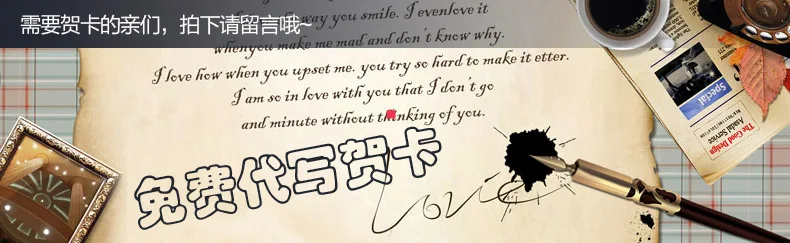 需要贺卡的亲们，拍下请留言哦~
way you smile. I evenlove it
whenyou make me mad and don't know why.
I love how when you upset me. you try so hard to make it etter.
I am so in love with you that I don't go
and minute without thinking of you.
免费代写贺卡
Love
Special
The Good Design
Asadal Service